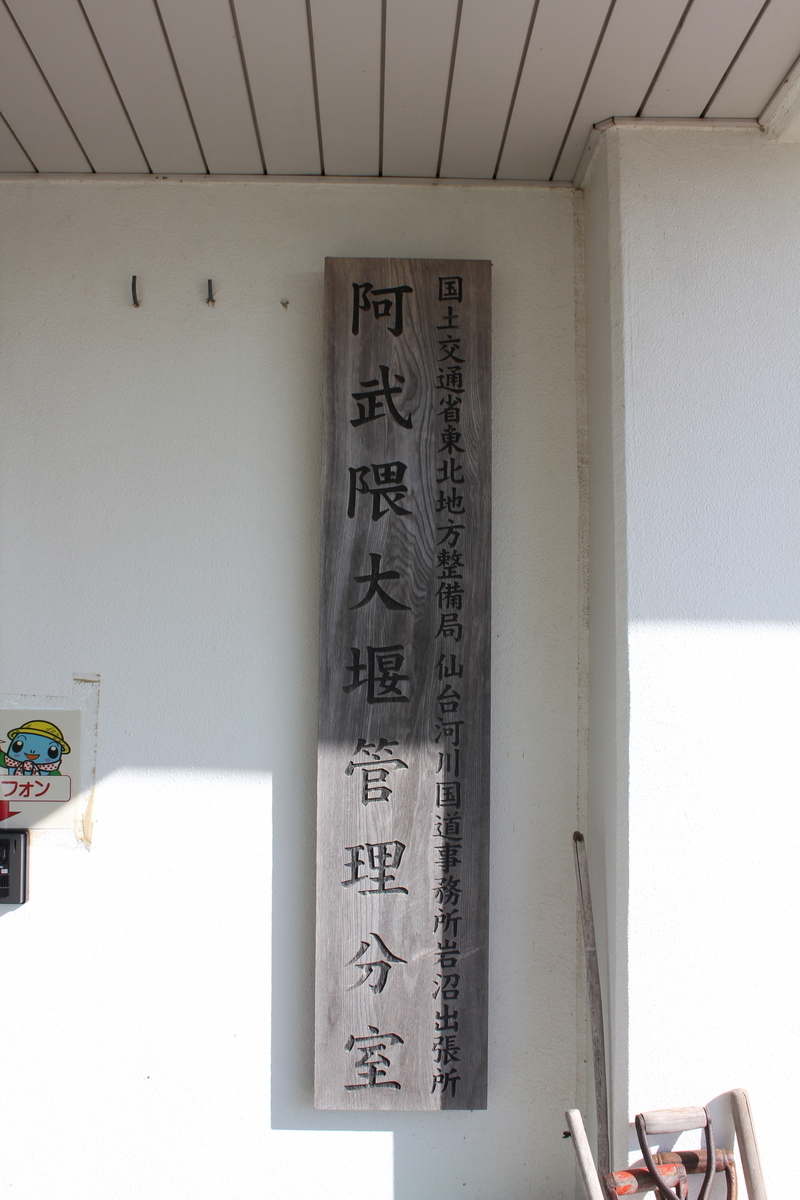 国土交通省東北地方整備局 仙台河川国道事務所岩沼出張所
阿武隈大堰管理分室
フォン